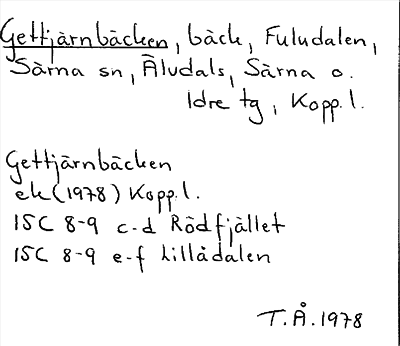 Gettjärnbäcken, bäck, Fuludalen,
Särna sn, Äludals, Särna o.
Idre tg, Kopp. l.
Gettjärnbäcken
ek (1978) Kopp. l.
15C 8-9 c-d Rödfjället
15C 8-9 e-f Lillådalen
T.Å. 1978